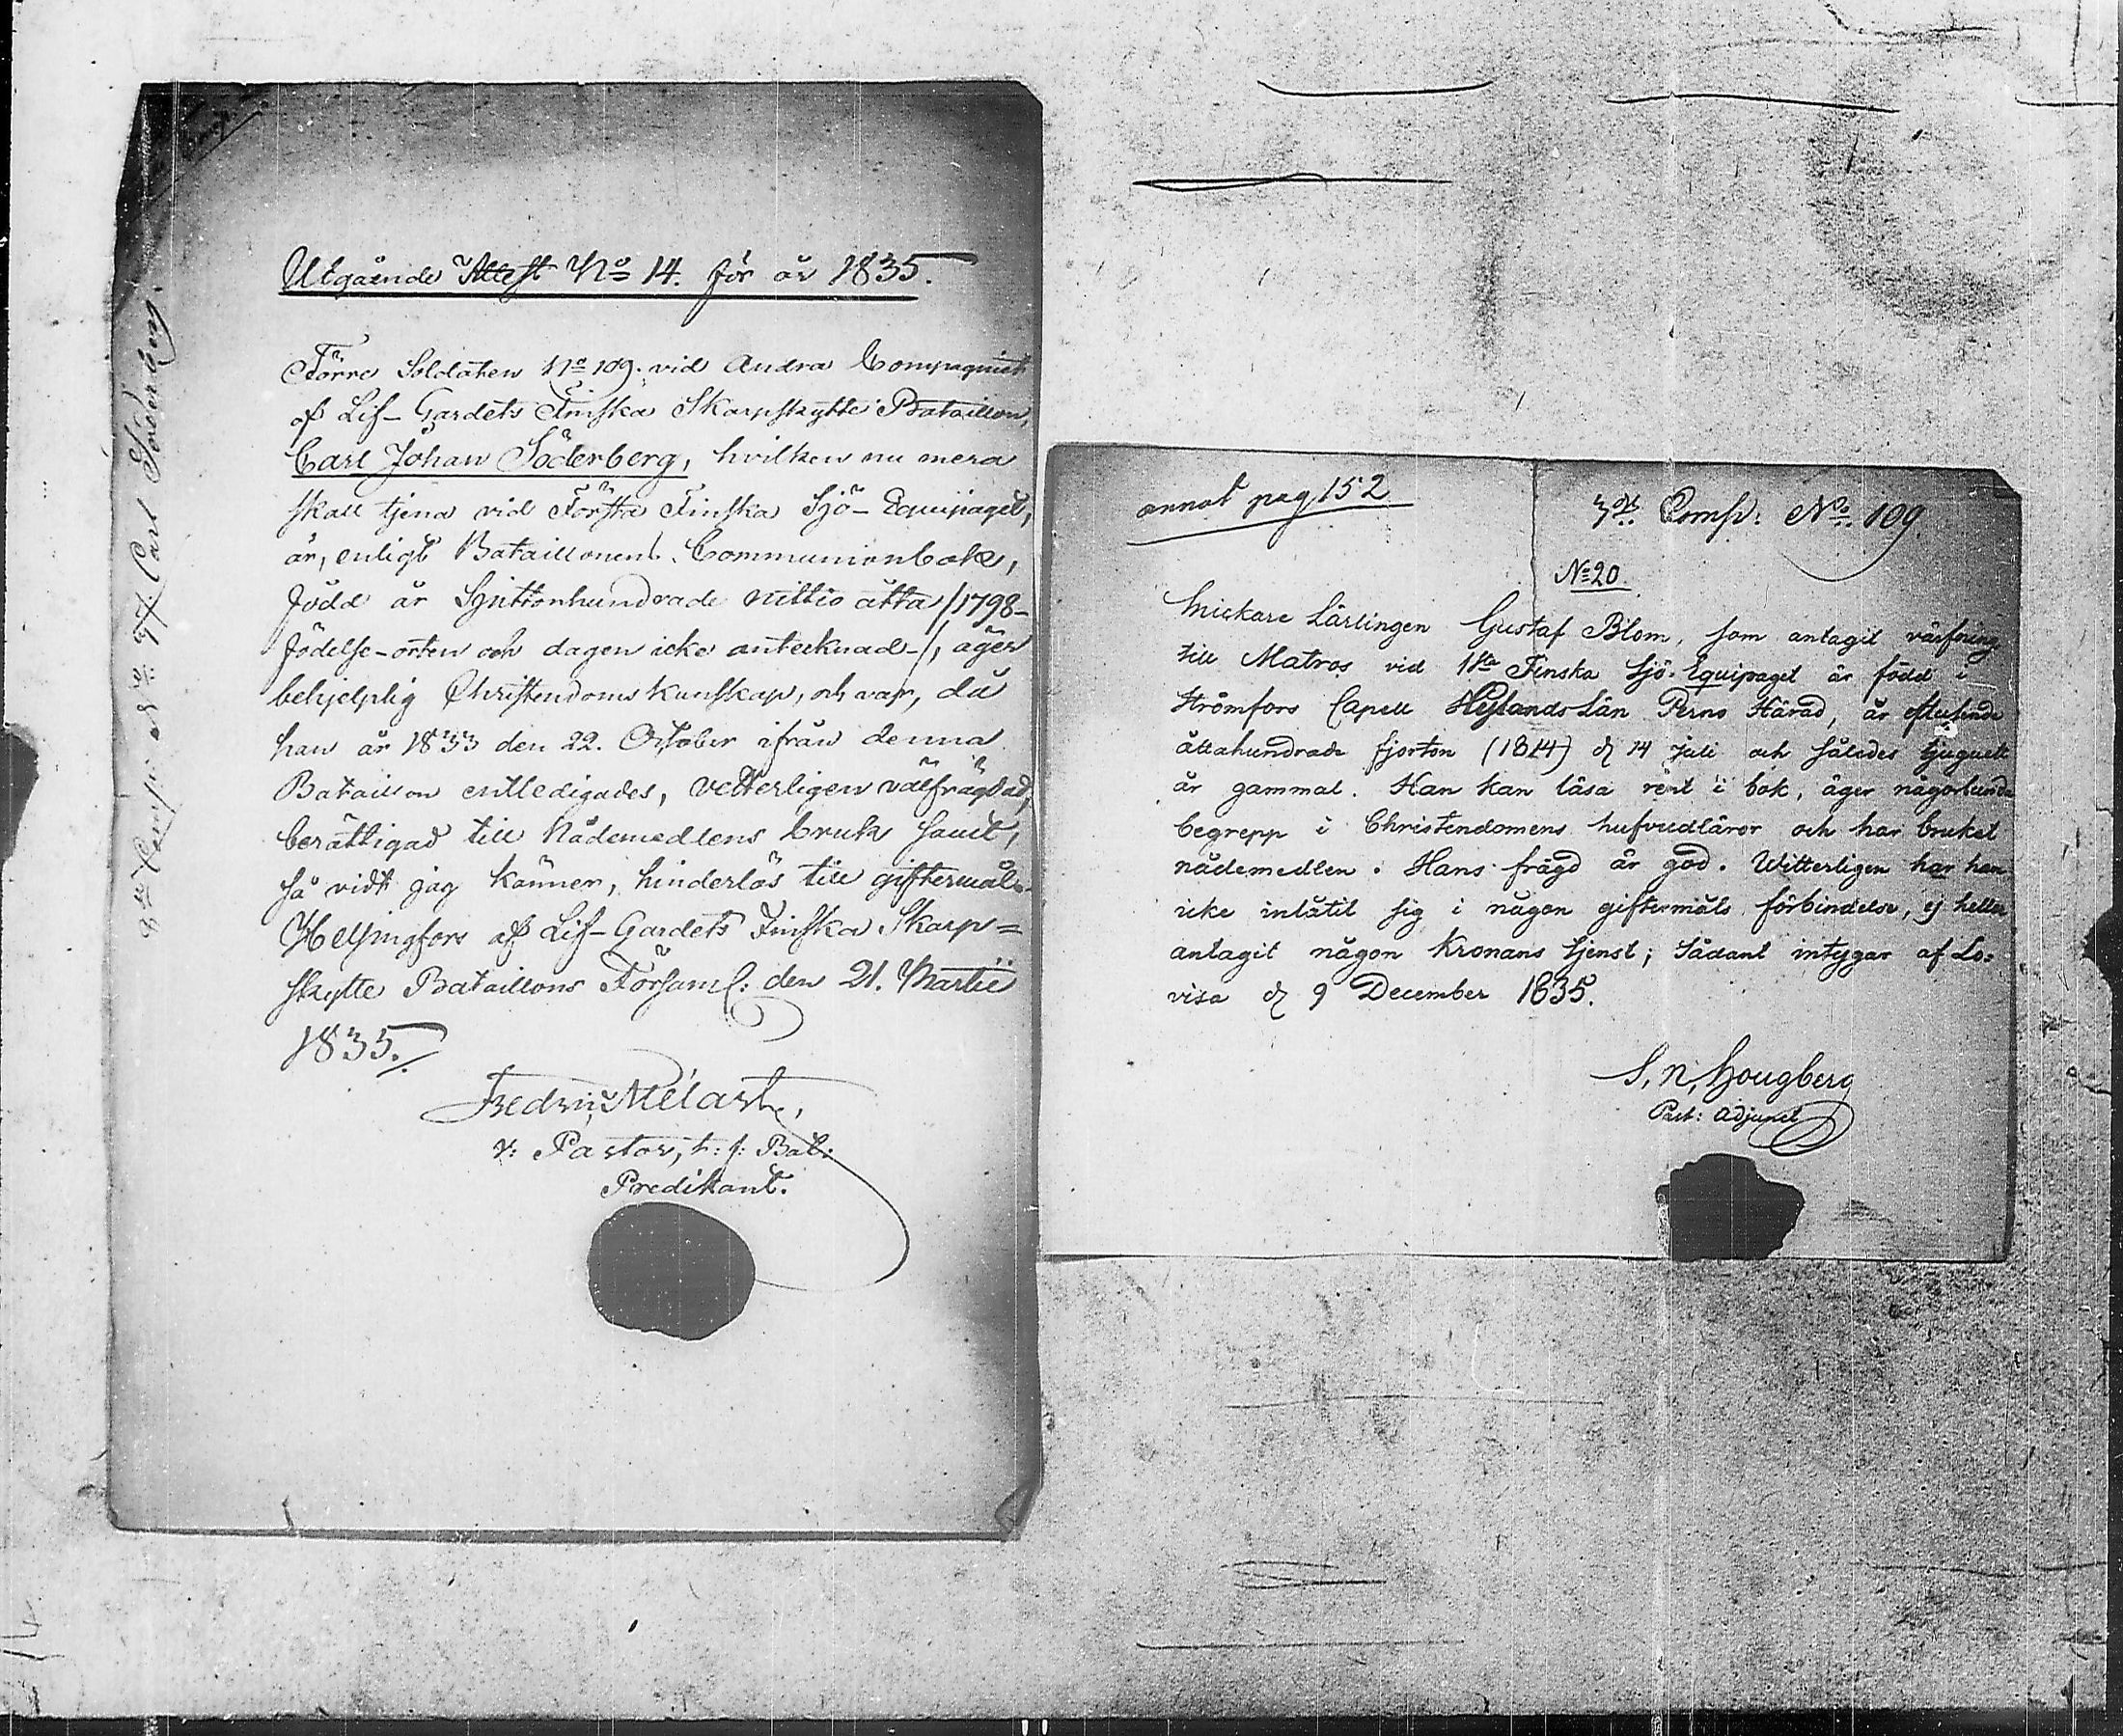 Utgående Attest No 14. för år 1835.
Förre Soldaten No 109. vid Andra Compagniet
af Lif-Gardets Finska Skarpskytte Bataillon,
Carl Johan Söderberg, hvilken nu mera
skall tjena vid Första Finska Sjö-Equipaget,
är, enligt Bataillonens Communionbok,
född år Sjuttonhundrade nittio åtta /1798-
födelse-orten och dagen icke antecknad-/, äger
behjelplig Christendoms kunskap, och var, då
han år 1833 den 22. October ifrån denna
Bataillon entledigades, vetterligen välfrägdad,
berättigad till Nådemedlens bruk samt,
så vidt jag känner, hinderlös till giftermål.
Helsingfors af Lif-Gardets Finska Skarp=
skytte Bataillons Församl: den 21. Martii
1835.
Fredric Melart,
v: Pastor, t: f: Bat:
Predikant.
3dje Comp: No 97. Carl Söderberg.
annot pag 152
3dje Comp: No. 109.
No 20.
Snickare Lärlingen Gustaf Blom, som antagit värfning
till Matros vid 1sta Finska Sjö-Equipaget är född i
Strömfors Capell Nylands Län Perno Härad, år
åttahundrade fjorton (1814) d 14 Juli och således tjuguett
år gammal. Han kan läsa rent i bok, äger någorlunda
begrepp i Christendomens hufvudläror och har brukat
nådemedlen. Hans frägd är god. Witterligen har han
icke inlåtit sig i någon giftermåls förbindelse, ej heller
antagit någon Kronans tjenst; Sådant intygar af Lo=
visa d 9 December 1835.
S. N. Hougberg
Past: Adjunct